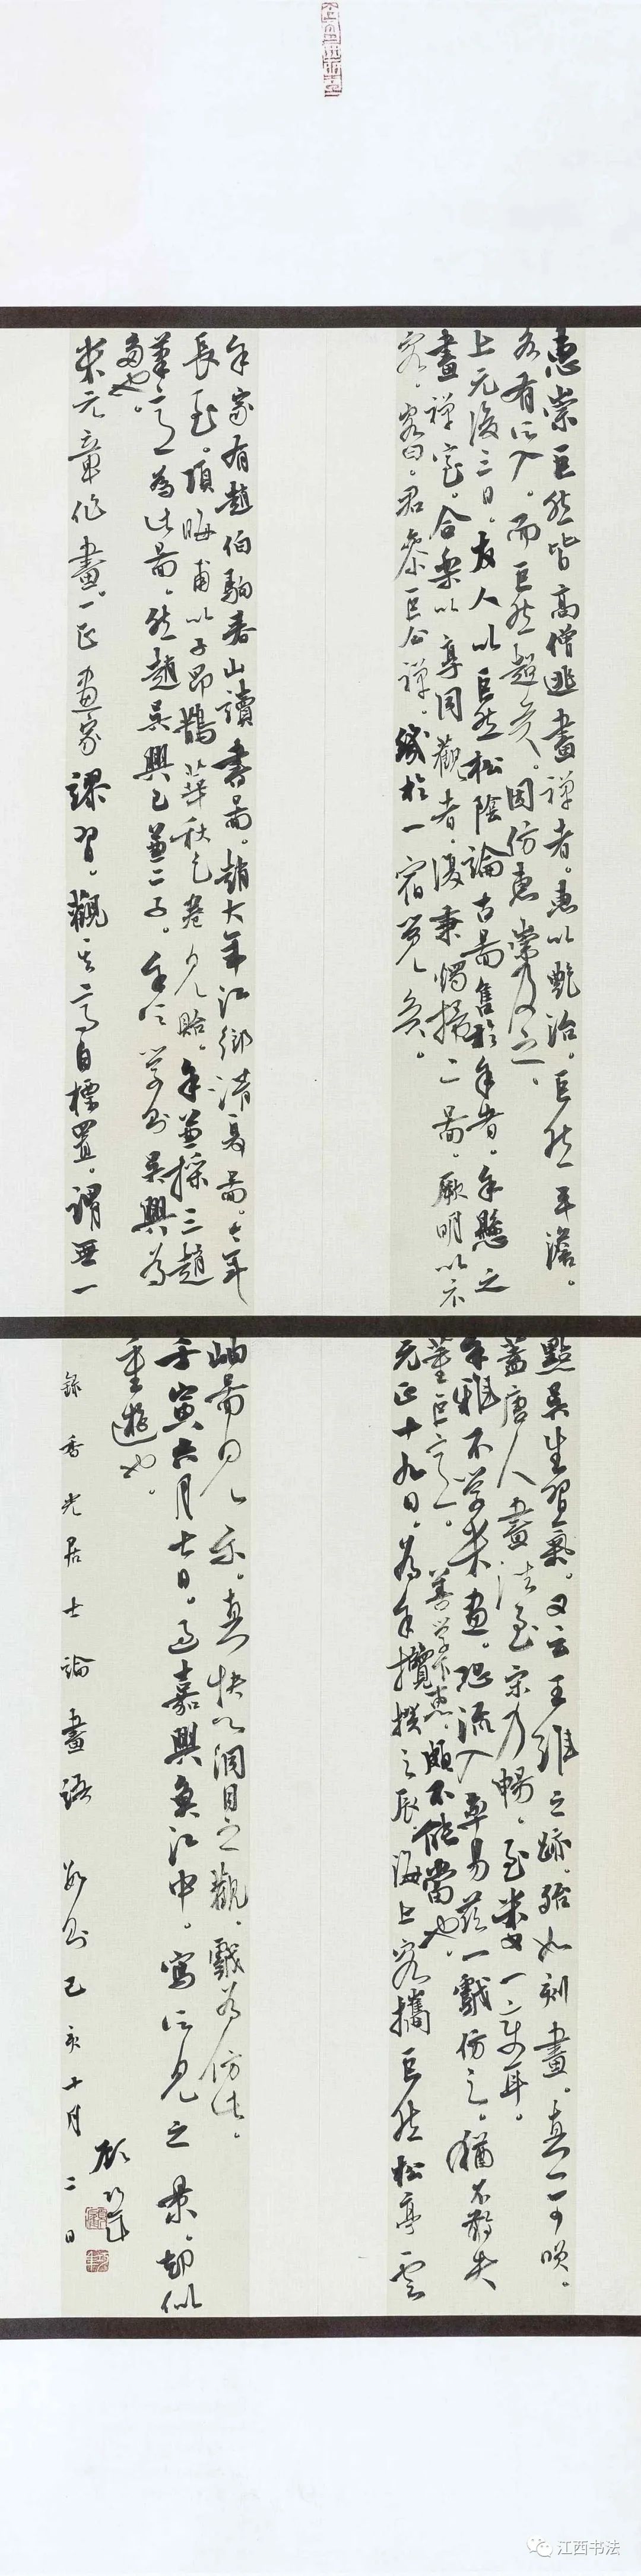 惠崇巨然皆高僧逃畫禪者。惠以艷冶。巨然平澹。
各有所入。而巨然超矣。因仿惠崇及之。
上元後三日。友人以巨然松陰論古圖售於余者。余懸之
畫禪室。合樂以享同觀者。復秉燭掃二圖。厥明以示
客。客曰。君參巨公禪。幾於一宿覺矣。
余家有趙伯駒春山讀書圖。趙大年江鄉清夏圖。今年
長至。項晦甫以子昂鵲華秋色卷見貽。余兼採三趙
筆意為此圖。然趙吳興已兼二子。余所學則吳興為
多也。
米元章作畫。一正畫家謬習。觀其高自標置。謂無一
點吳生習氣。又云王維之跡。殆如刻畫。真一可咲。
蓋唐人畫法至宋乃暢。至米又一變耳。
余雖不學米畫。恐流入率易茲一戲仿之。猶不敢失
董巨意。善學下惠。頗不能當也。
元正十九日。為余攬揆之辰。海上客攜巨然松亭雲
岫圖見示。真快心洞目之觀。戲為仿此。
壬寅六月七日。過嘉興魚江中。寫所見之景。却似
重遊也。
錄香光居士論畫語數則己亥十月二日
江西书法